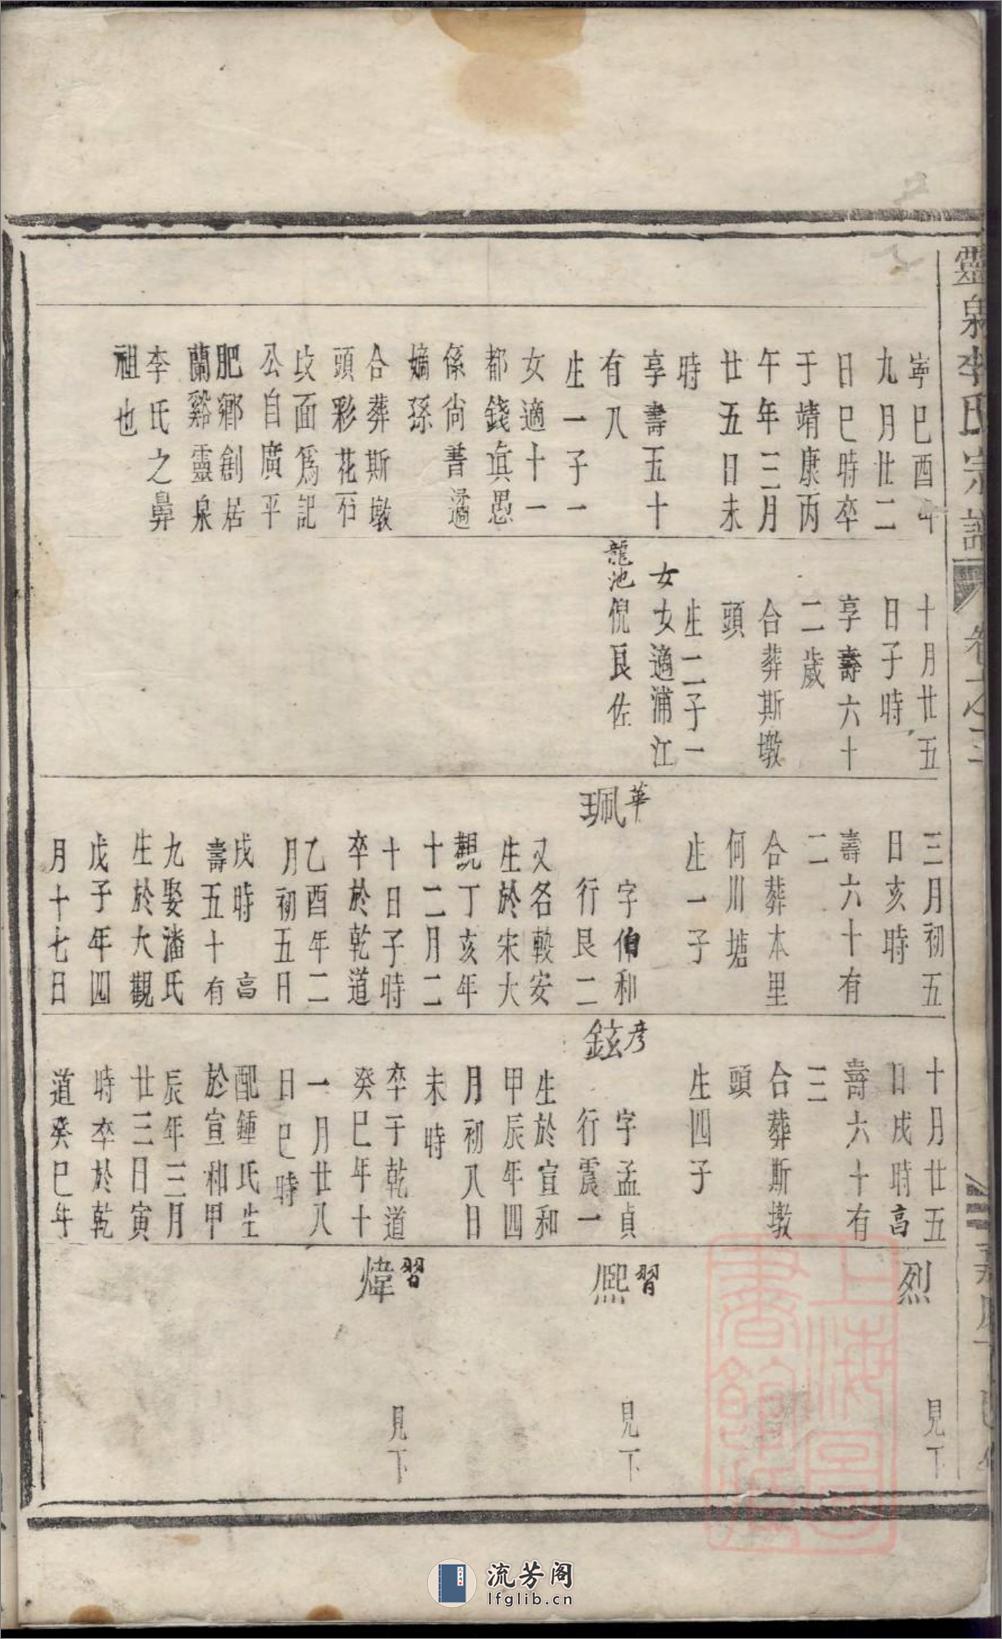 靈泉李氏宗譜
卷之三
寧巳酉年
九月廿二
日巳時卒
于靖康丙
午年三月
廿五日未
時
享壽五十
有八
生一子一
女適十一
都錢宜愚
係尚書遹
嫡孫
合葬斯墩
頭彩花石
坟面為記
公自廣平
肥鄉創居
蘭谿靈泉
李氏之鼻
祖也
十月廿五
日子時
享壽六十
二歲
合葬斯墩
頭
生二子一
女
女適浦江
龍池倪良佐
三月初五
日亥時
壽六十有
二
合葬本里
何川塘
生一子
華
珮
字伯和
行艮二
又名毅安
生於宋大
觀丁亥年
十二月二
十日子時
卒於乾道
乙酉年二
月初五日
戌時 高
壽五十有
九娶潘氏
生於大觀
戊子年四
月十七日
十月廿五
日戌時高
壽六十有
三
合葬斯墩
頭
生四子
彦
鉉
字孟貞
行震一
生於宣和
甲辰年四
月初八日
未時
卒于乾道
癸巳年十
一月廿八
日巳時
配鍾氏生
於宣和甲
辰年三月
廿三日寅
時卒於乾
道癸巳年
烈
見下
習
熙
見下
習
煒
見下
上海圖書館藏
流芳阁
lfglib.cn